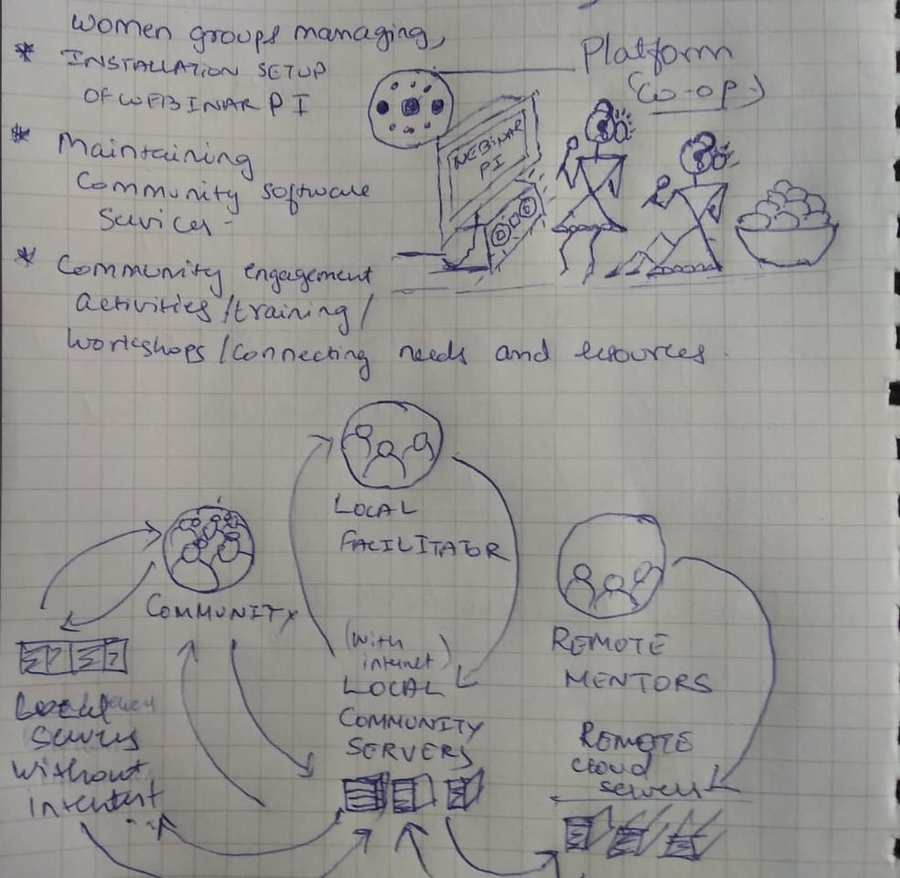 women groups managing,
* INSTALLATION SETUP
OF WEBINAR PI
* Maintaining
Community software
Services -
* Community engagement
activities / training /
workshops / connecting needs and resources.
Platform
(Co-op)
WEBINAR
PI
LOCAL
FACILITATOR
COMMUNITY
(with
internet)
LOCAL
COMMUNITY
SERVERS
REMOTE
MENTORS
REMOTE
cloud
servers
Local
Servers
without
internet